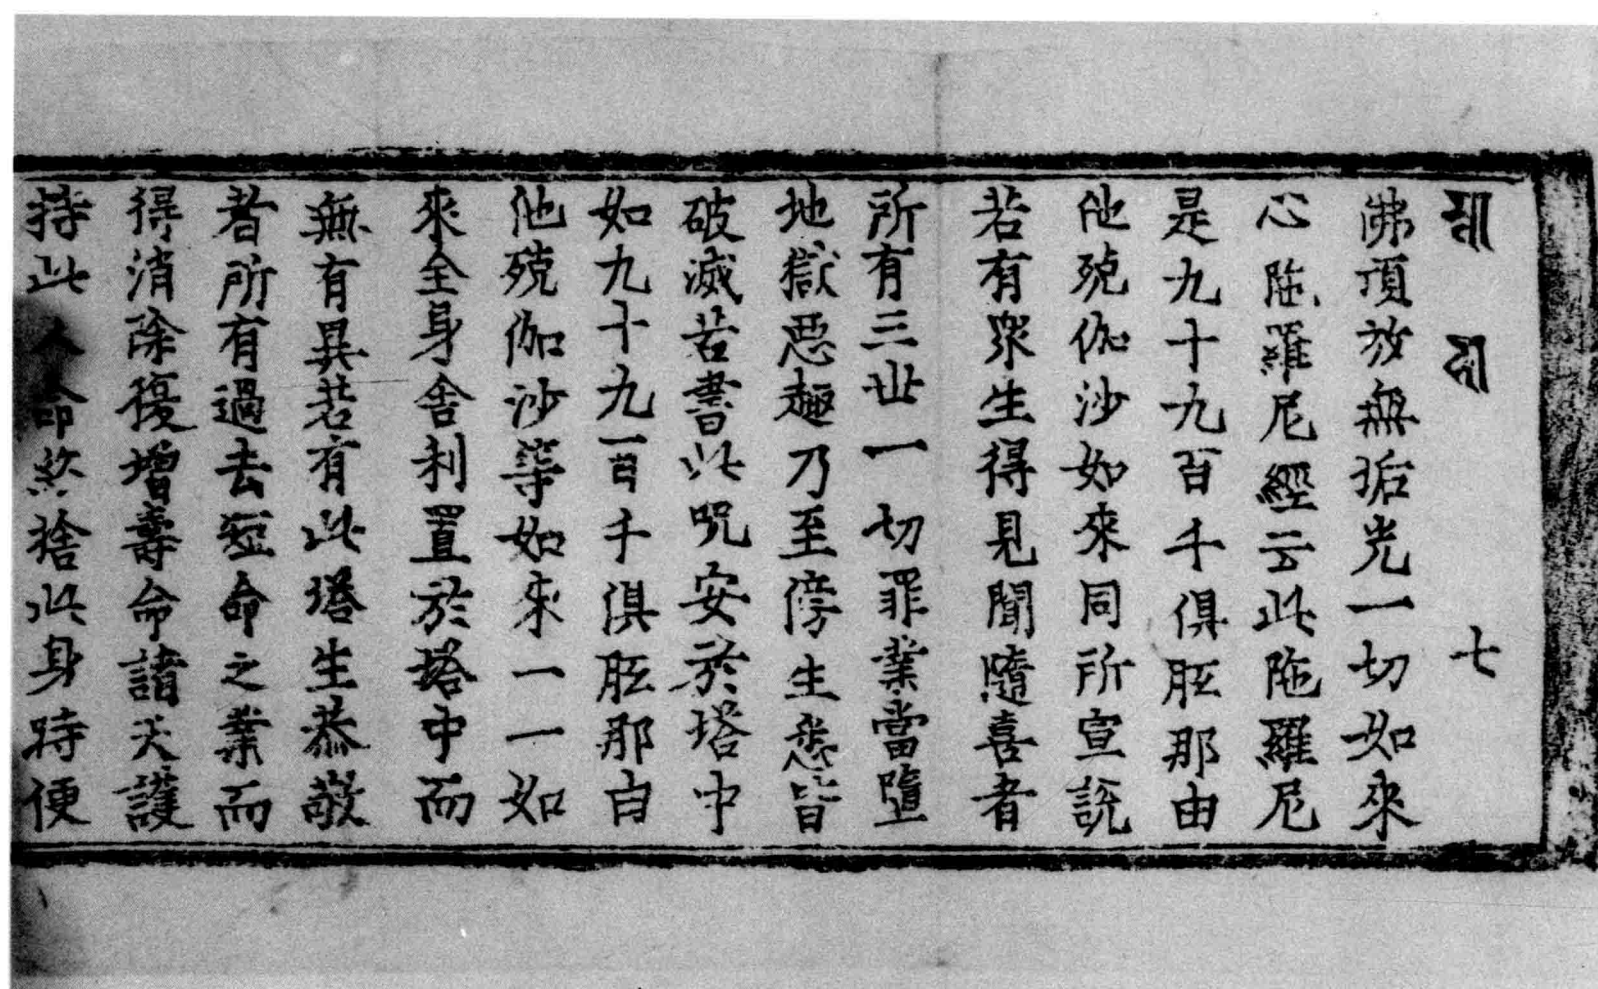 七
佛頂放無垢光一切如來
心陁羅尼經云此陁羅尼
是九十九百千俱胝那由
他殑伽沙如來同所宣說
若有衆生得見聞隨喜者
所有三世一切罪業當墮
地獄惡趣乃至傍生悉皆
破滅若書此呪安於塔中
如九十九百千俱胝那由
他殑伽沙等如來一一如
來全身舍利置於塔中而
無有異若有此塔生恭敬
者所有過去短命之業而
得消除復增壽命諸天護
持此人命終捨此身時便